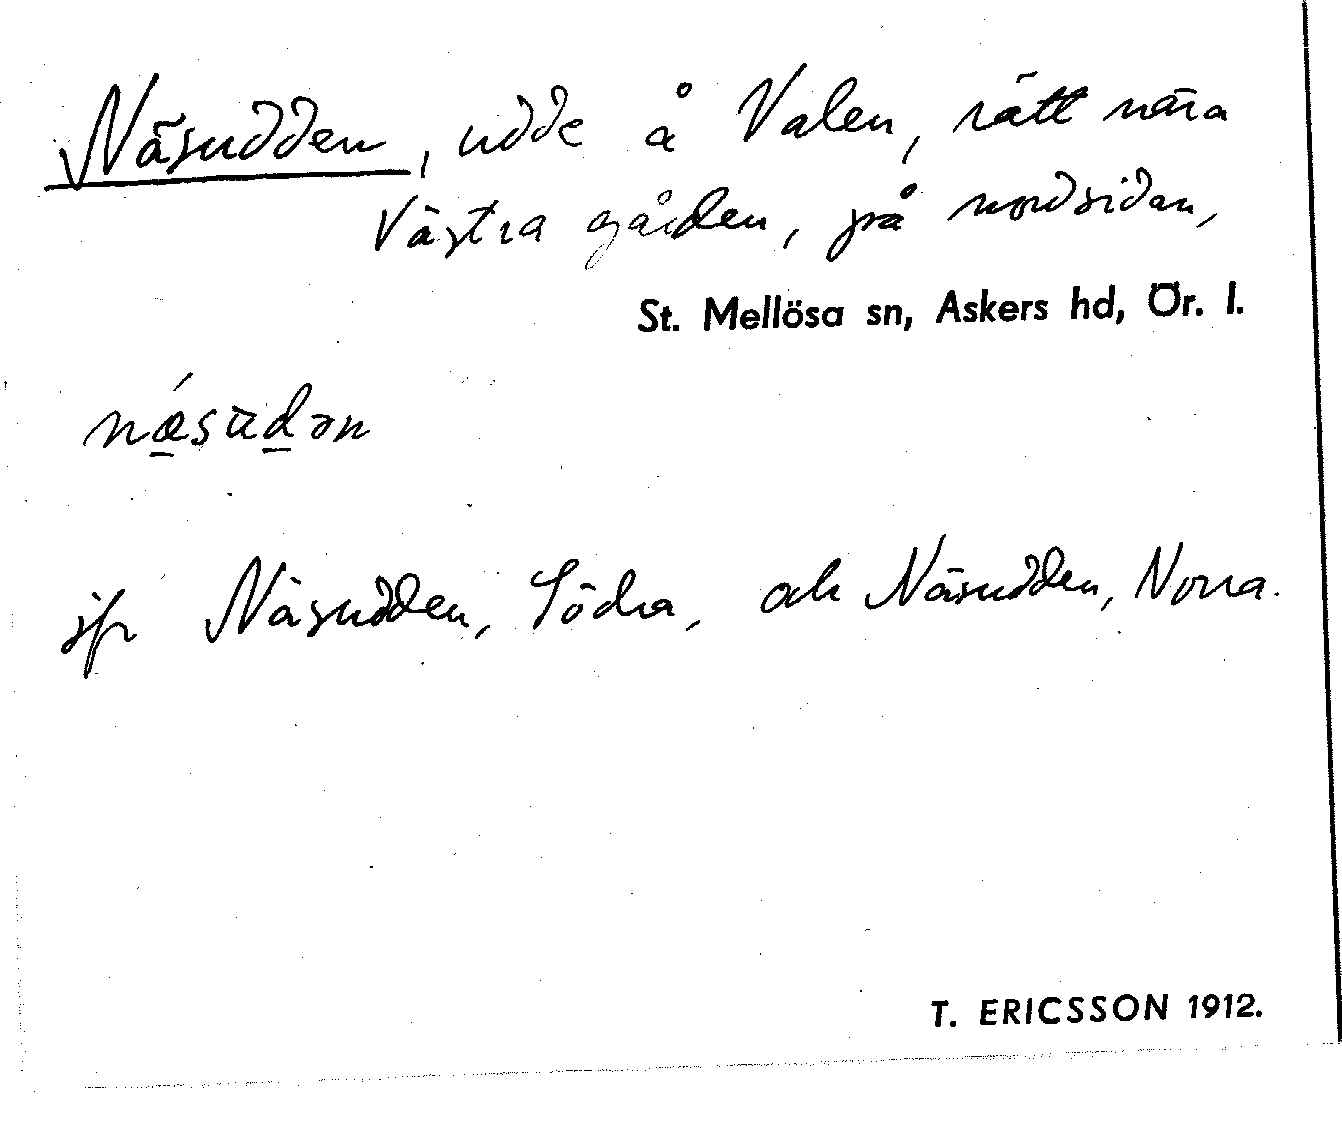 Näsudden, udde å Valen, rätt nära
Västra gården, på nordsidan,
St. Mellösa sn, Askers hd, Ör. l.
nǽ̱sùḏən
jfr Näsudden, Södra, och Näsudden, Norra.
T. ERICSSON 1912.